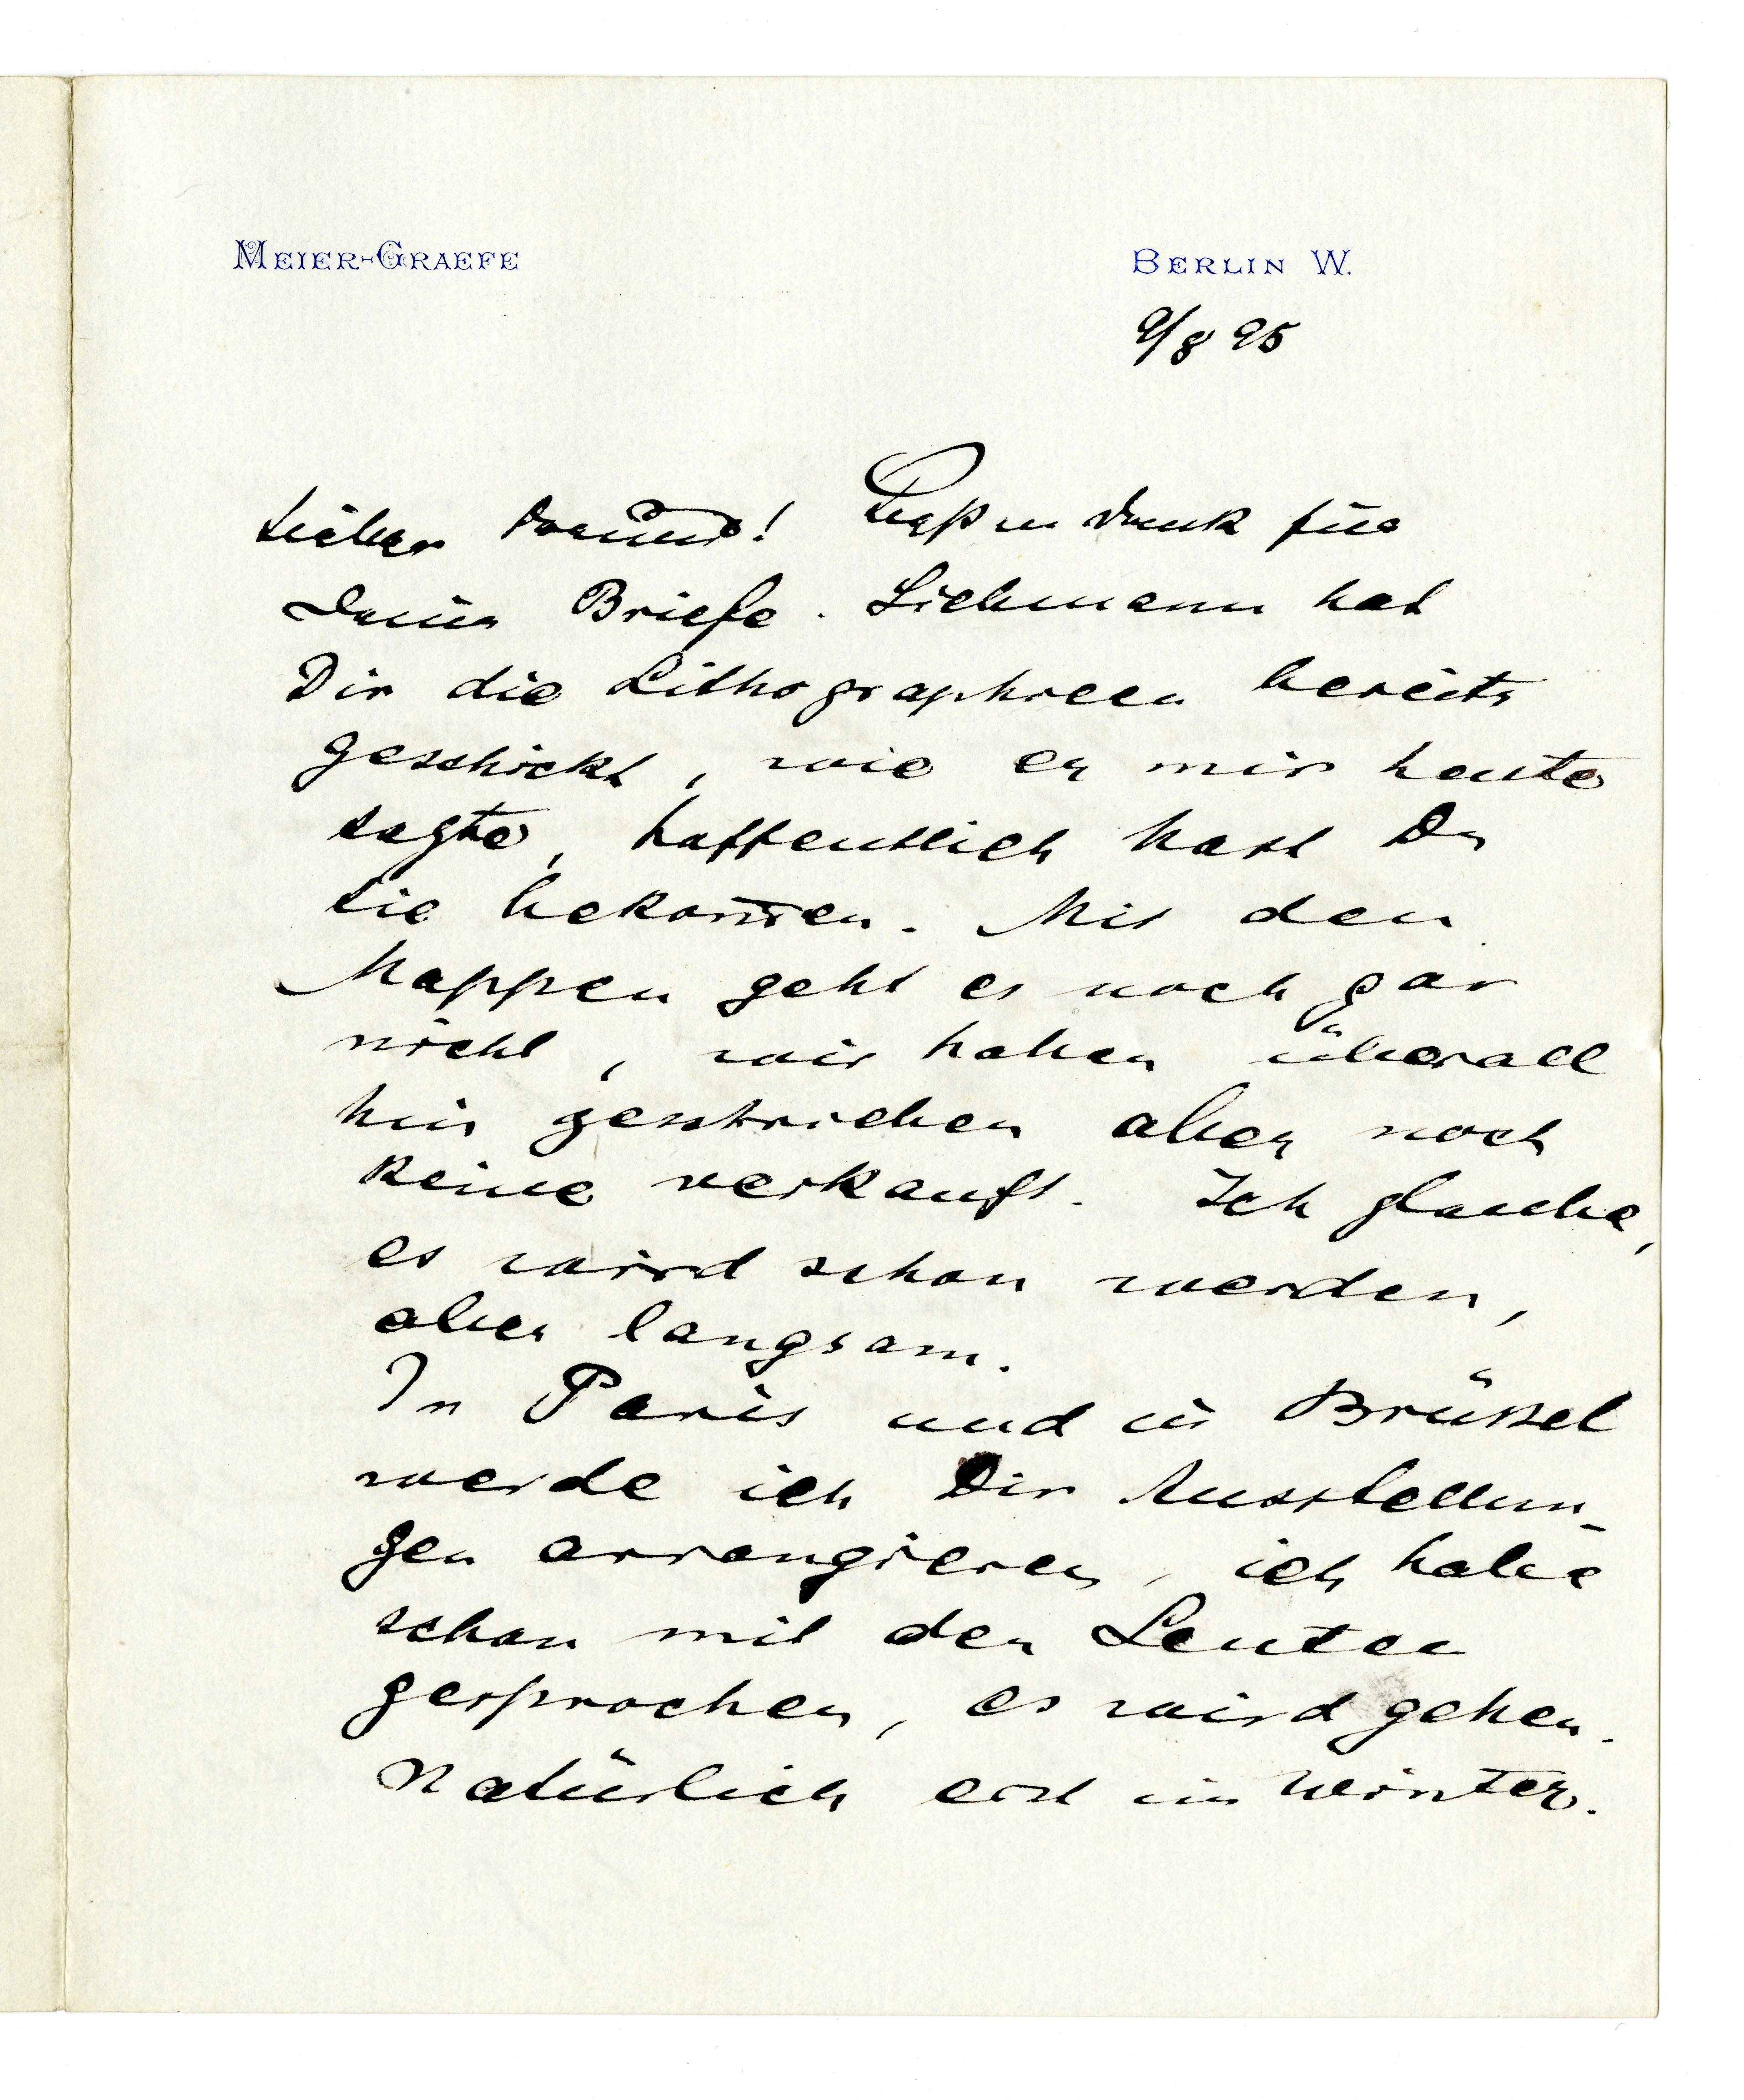 MEIER-GRAEFE BERLIN W.
9/8 95
Lieber Freund! Besten Dank für
Deine Briefe. Liebmann hat
Dir die Lithographieen bereits
geschickt, wie er mir heute
sagte, hoffentlich hast Du
sie bekom̅en. Mit den
Mappen geht es noch gar
nicht, wir haben überall
hin geschrieben aber noch
keine verkauft. Ich glaube,
es wird schon werden,
aber langsam.
In Paris und in Brüssel
werde ich Dir Ausstellun-
gen arrangieren, ich habe
schon mit den Leuten
gesprochen, es wird gehen.
Natürlich erst im Winter.